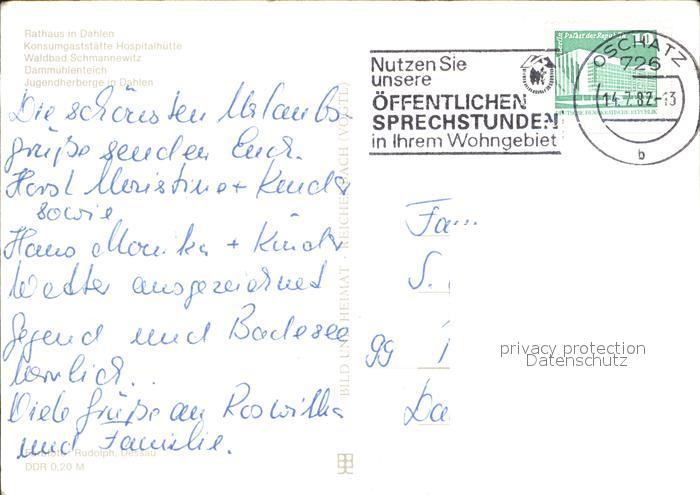 Rathaus in Dahlen
Konsumgaststätte Hospitalhütte
Waldbad Schmannewitz
Dammühlenteich
Jugendherberge in Dahlen
Die schönsten Urlaubs-
grüße senden Euch.
Horst Christine + Kinder
sowie
Hans Monika + Kinder
Wetter ausgezeichnet
Gegend und Badesee
herrlich..
Viele Grüße an Roswitha
und Familie.
Rudolph, Dessau
DDR 0,20 M
BILD UND HEIMAT · REICHENBACH (VOGTL)
Nutzen Sie
unsere
ÖFFENTLICHEN
SPRECHSTUNDEN
in Ihrem Wohngebiet
Palast der Republik
10
DEUTSCHE DEMOKRATISCHE REPUBLIK
OSCHATZ
726
14.7.87-13
b
Fa
S.
99
Da
privacy protection
Datenschutz